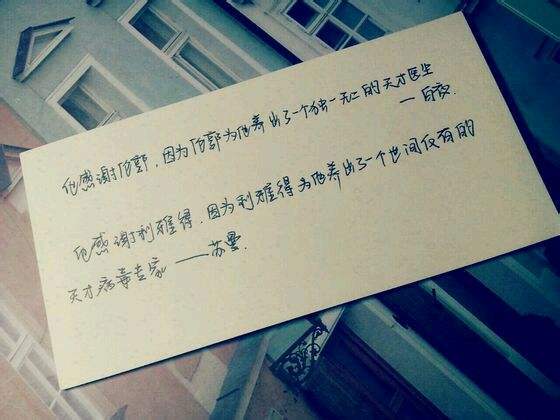 他感谢伯郭，因为伯郭为他养出了一个独一无二的天才医生
— 白夜.
他感谢利雅得，因为利雅得为他养出了一个世间仅有的
天才病毒专家 —— 苏曼.